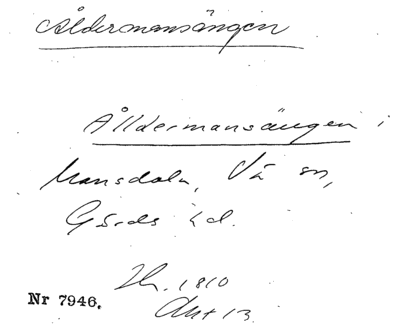 Åldermansängen
Ålldermansängen i
Mansdala, Vä sn,
Gärds hd.
1810
Nr 7946.
Akt 13.